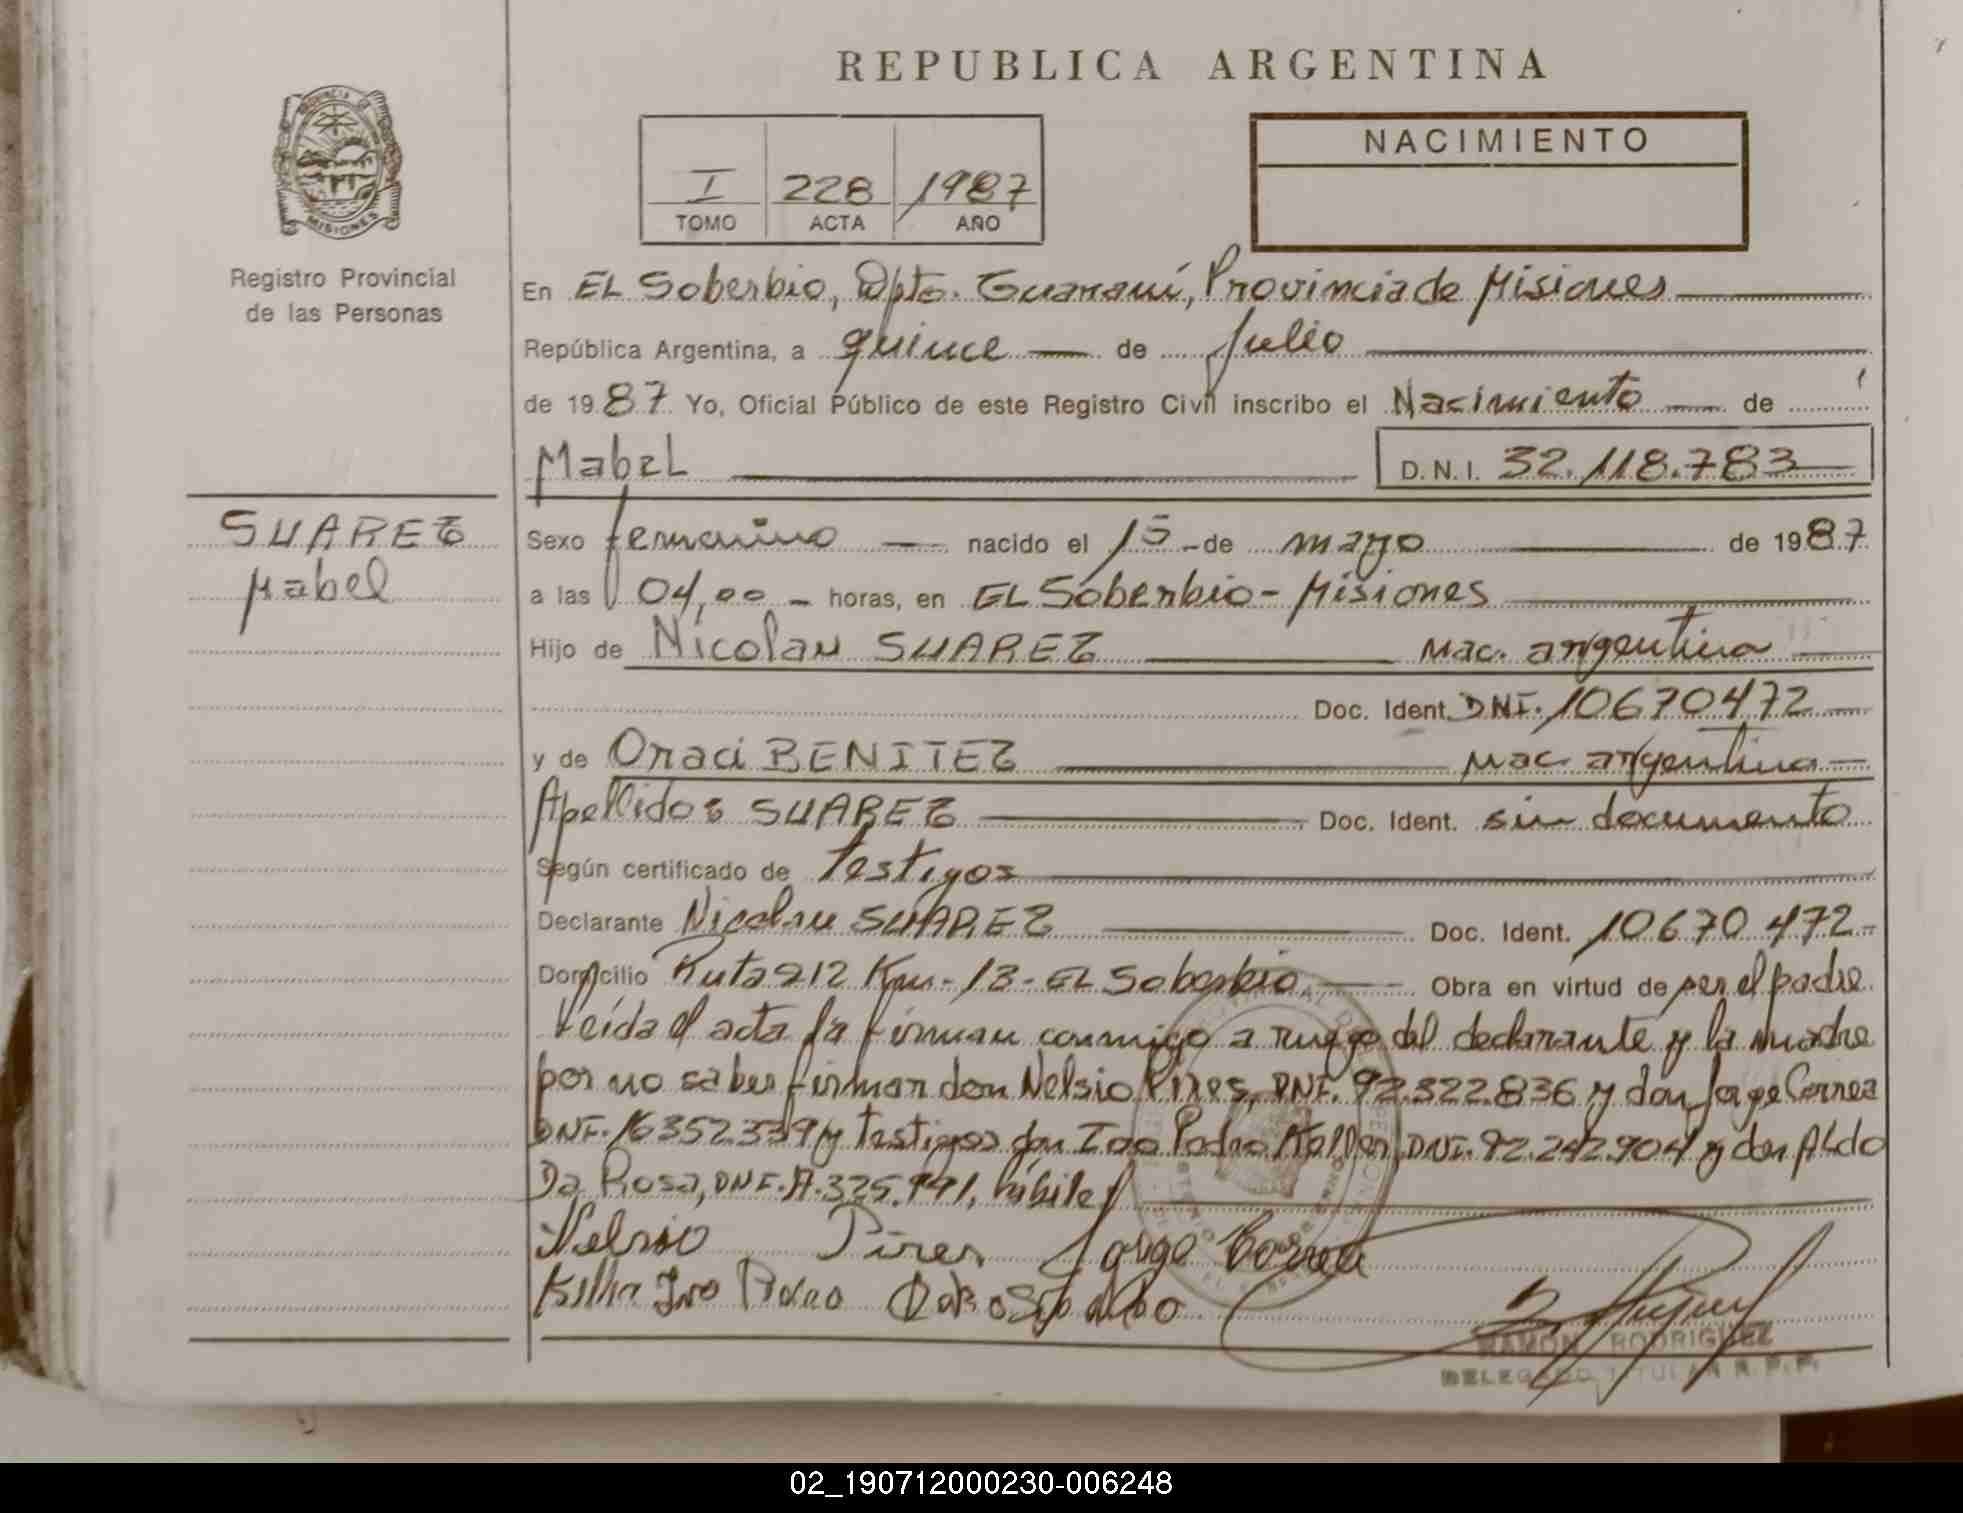 REPUBLICA ARGENTINA
PROVINCIA DE
MISIONES
Registro Provincial
de las Personas
I 228 1987
TOMO ACTA AÑO
NACIMIENTO
En EL Soberbio, Dpto. Guaraní, Provincia de Misiones
República Argentina, a quince de Julio
de 1987 Yo, Oficial Público de este Registro Civil inscribo el Nacimiento de
Mabel D.N.I. 32.118.783
SUAREZ
Mabel
Sexo femenino nacido el 15 - de mayo de 1987
a las 04,00 - horas, en EL Soberbio - Misiones
Hijo de Nicolau SUAREZ nac. argentina
Doc. Ident. DNI. 10670472
y de Oraci BENITEZ nac argentina
Apellidos SUAREZ Doc. Ident. sin documento
Según certificado de Testigos
Declarante Nicolau SUAREZ Doc. Ident. 10670472
Domicilio Ruta 212 Km - 13 - EL Soberbio Obra en virtud de ser el padre
Leída el acta la firman conmigo a ruego del declarante y la madre
por no saber firmar don Nelsio Pires, DNI. 92.322.836 y don Jorge Correa
DNI. 16352339 y testigos don Ivo Pedro Keller, DNI. 92.242.904 y don Aldo
Da Rosa, DNI. hábiles
Nelsio Pires Jorge Correa
Keller Ivo Pedro Da Rosa Aldo
RAMON RODRIGUEZ
DELEGADO TITULAR R.P.P.
02_190712000230-006248